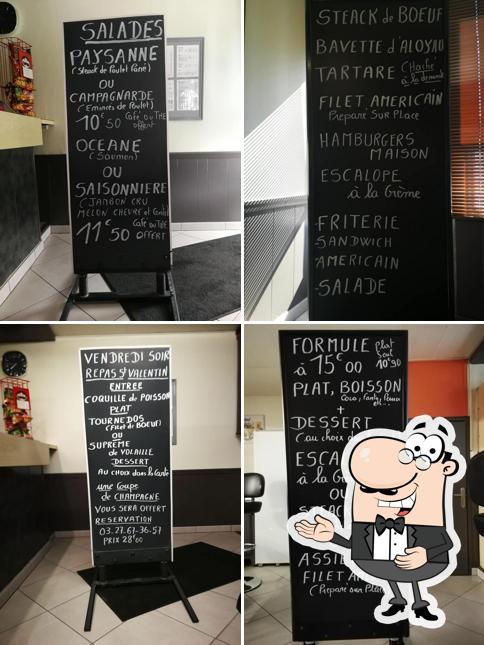 SALADES
PAYSANNE
(Steack de Poulet Pané)
OU
CAMPAGNARDE
(Eminces de Poulet)
10€50 Café ou THE
offert
OCEANE
(Saumon)
OU
SAISONNIERE
(JAMBON CRU
MELON CHEVRE et
11€50 Café ou THE
OFFERT
STEACK de BOEUF
BAVETTE d'ALOYAU
TARTARE (Haché
à la demande
FILET AMERICAIN
Préparé SUR Place
HAMBURGERS
MAISON
ESCALOPE
à la Crème
FRITERIE
SANDWICH
AMERICAIN
-SALADE
VENDREDI SOIR
REPAS St VALENTIN
ENTREE
COQUILLE de POISSON
PLAT
TOURNEDOS
(Filet de BOEUF)
OU
SUPREME
de VOLAILLE
DESSERT
AU CHOIX dans la Carte
une Coupe
de CHAMPAGNE
VOUS SERA OFFERT
RESERVATION
03.27.67-36-57
PRIX 28€00
FORMULE Plat
Seul
à 15€00 10€90
PLAT, BOISSON
Coca,
etc..
+
DESSERT
(au choix
ESCA
à la
OU
STEAC
ASSI
FILET A
(Préparé sur Place